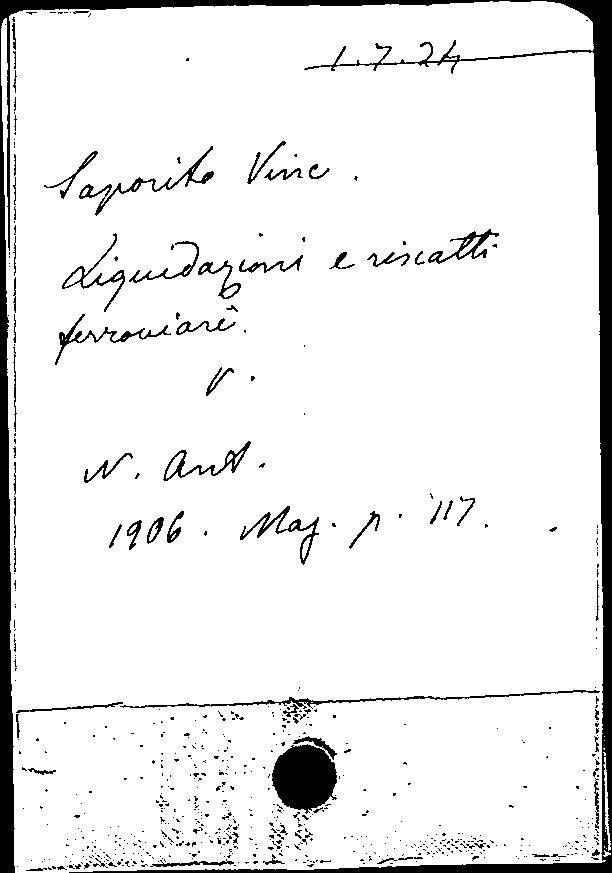 1.7.24
Saporito Vinc.
Liquidazioni e riscatti
ferroviari.
V.
N. Ant.
1906. Mag. p. 117.